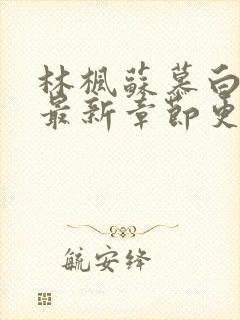 林枫苏慕白
最新章节更
航安绛